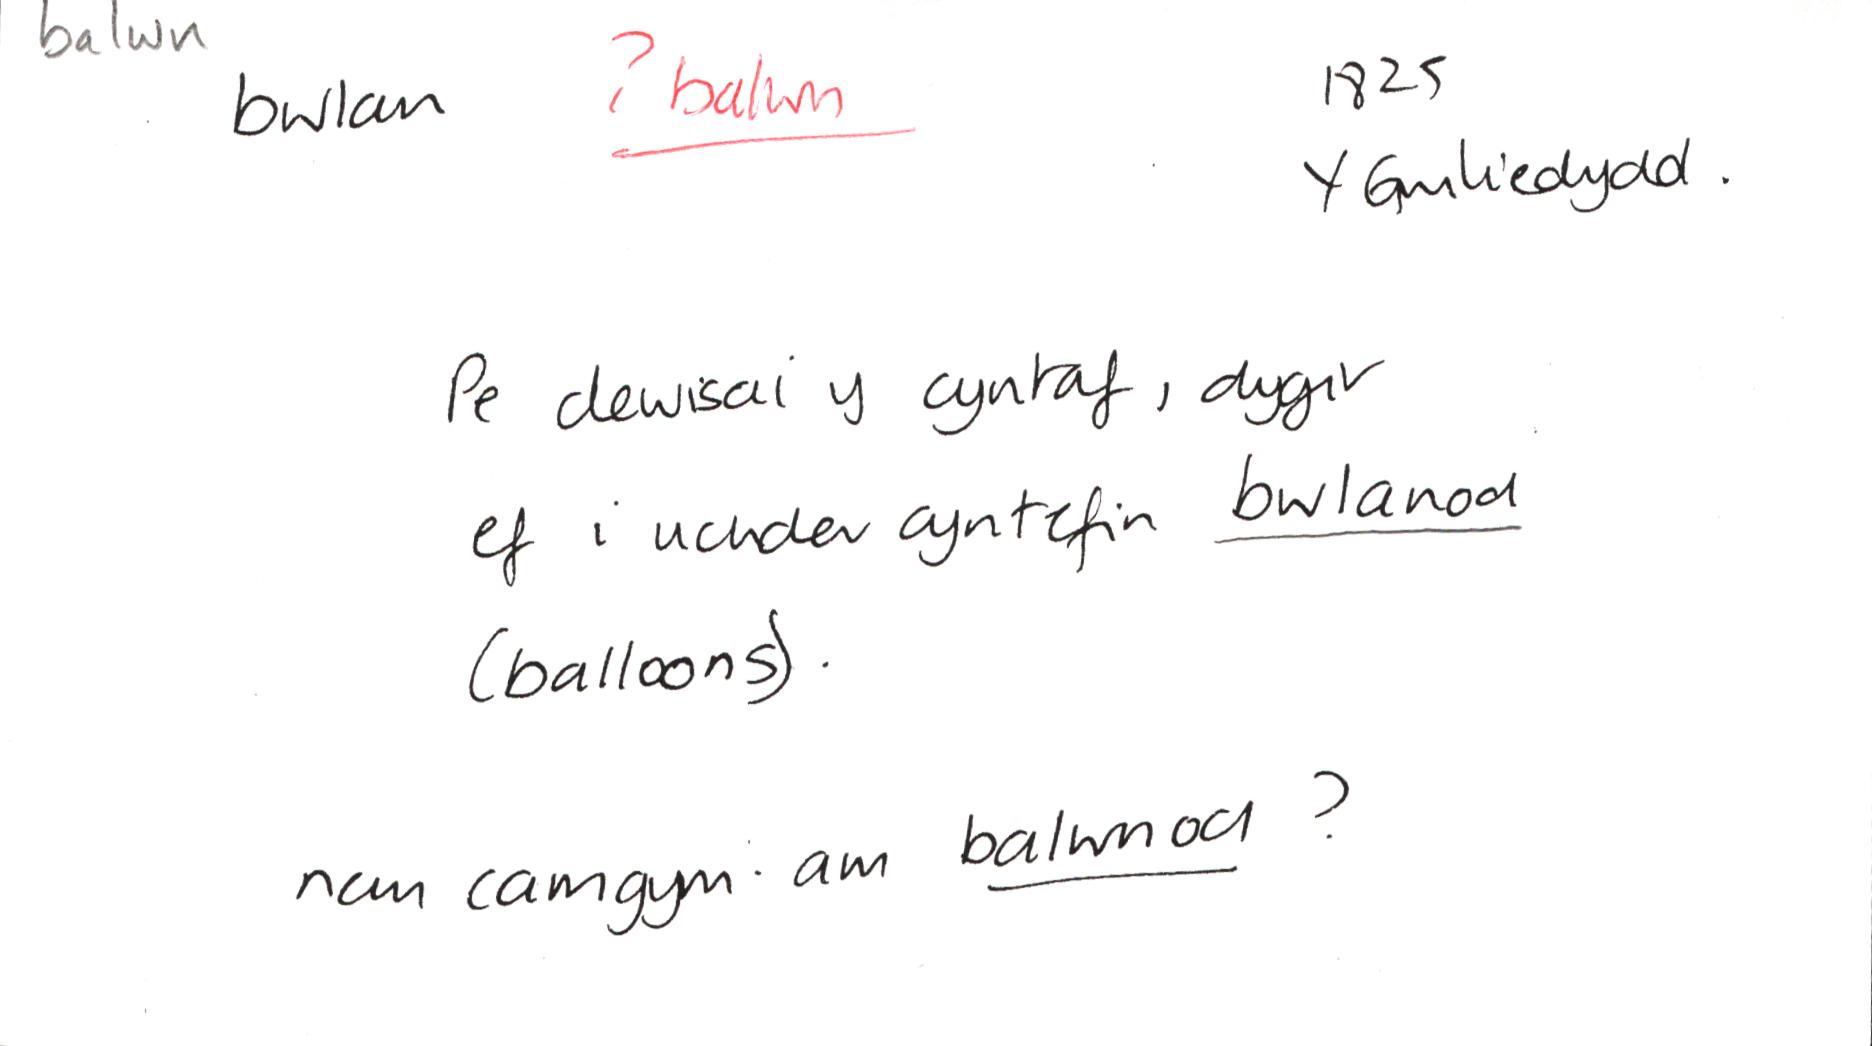 balwn
bwlan ? balwn 1825
Y Gwliedydd.
Pe dewisai y cyntaf, dygir
ef i uchder cyntefin bwlanod
(balloons).
neu camgym. am balwnod ?